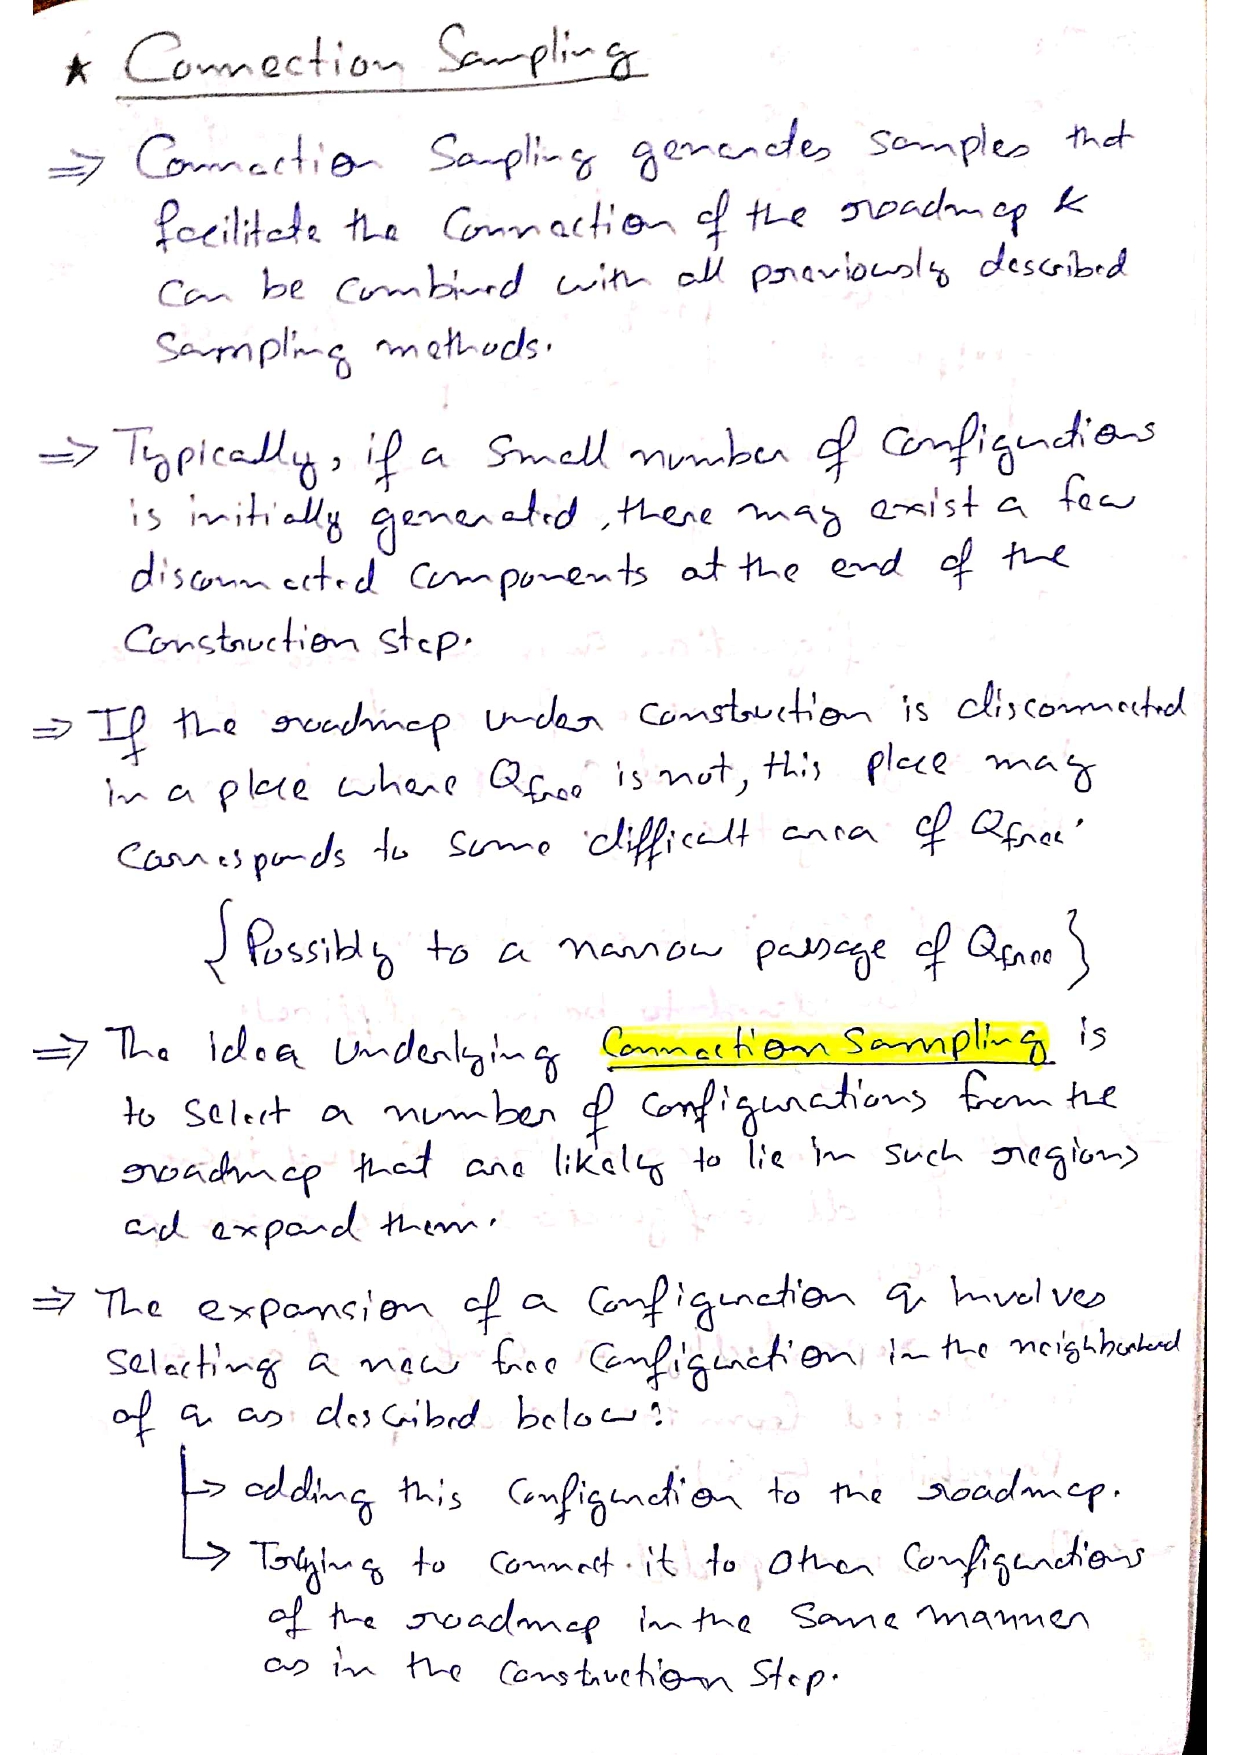 ★ Connection Sampling
⇒ Connection Sampling generates samples that
facilitate the Connection of the roadmap &
can be combined with all previously described
Sampling methods.
⇒ Typically, if a small number of Configurations
is initially generated, there may exist a few
disconnected components at the end of the
Construction step.
⇒ If the roadmap under construction is disconnected
in a place where Qfree is not, this place may
Corresponds to some difficult area of Qfree.
{Possibly to a narrow passage of Qfree}
⇒ The idea underlying Connection Sampling is
to select a number of configurations from the
roadmap that are likely to lie in such regions
and expand them.
⇒ The expansion of a Configuration q involves
selecting a new free Configuration in the neighborhood
of q as described below:
↳ adding this Configuration to the roadmap.
↳ Trying to connect it to other Configurations
of the roadmap in the same manner
as in the Construction Step.